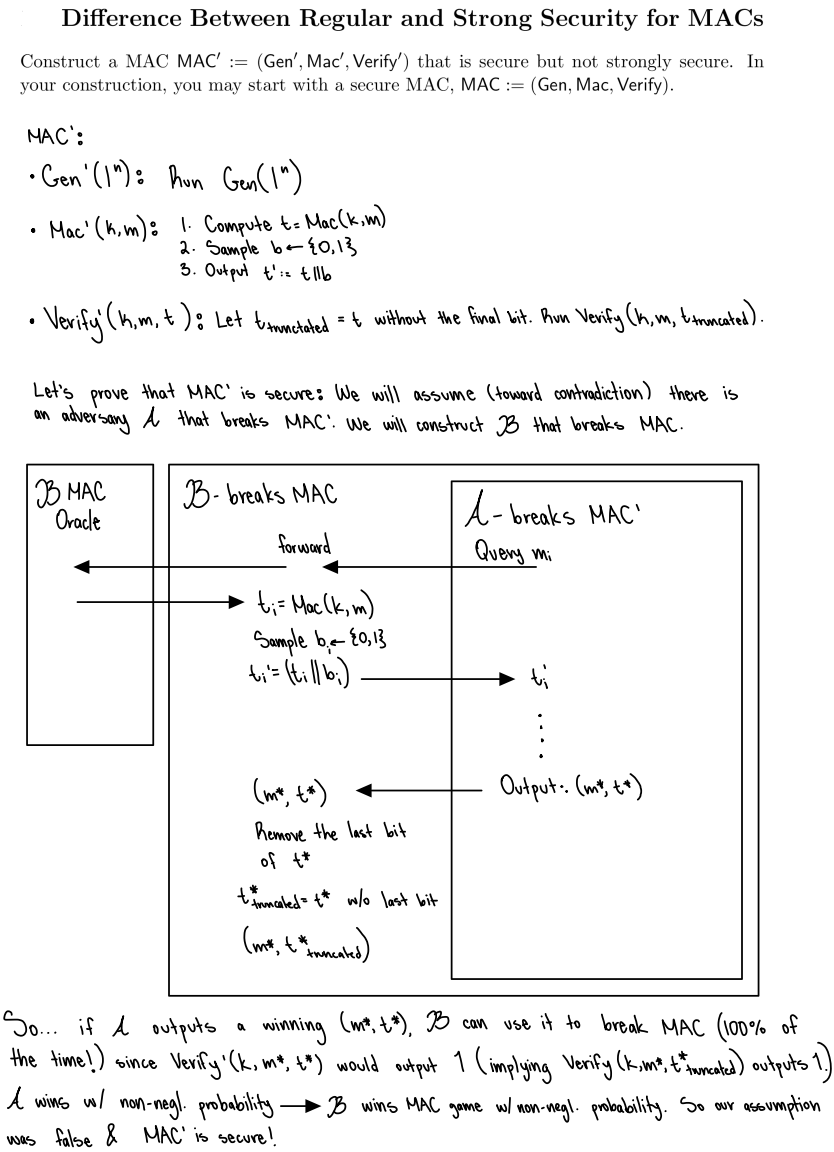 Difference Between Regular and Strong Security for MACs
Construct a MAC MAC′ := (Gen′, Mac′, Verify′) that is secure but not strongly secure. In
your construction, you may start with a secure MAC, MAC := (Gen, Mac, Verify).
MAC':
• Gen'(1ⁿ): Run Gen(1ⁿ)
• Mac'(k,m): 1. Compute t = Mac(k,m)
2. Sample b ← {0,1}
3. Output t' := t||b
• Verify'(k,m,t): Let t_trunctated = t without the final bit. Run Verify(k,m, t_truncated).
Let's prove that MAC' is secure: We will assume (toward contradiction) there is
an adversary A that breaks MAC'. We will construct B that breaks MAC.
B MAC
Oracle
B - breaks MAC
A - breaks MAC'
Query mᵢ
forward
tᵢ = Mac(k,m)
Sample bᵢ ← {0,1}
tᵢ' = (tᵢ || bᵢ)
tᵢ'
Output: (m*, t*)
(m*, t*)
Remove the last bit
of t*
t*_truncated = t* w/o last bit
(m*, t*_truncated)
So... if A outputs a winning (m*, t*), B can use it to break MAC (100% of
the time!) since Verify'(k, m*, t*) would output 1 (implying Verify(k,m*, t*_truncated) outputs 1.)
A wins w/ non-negl. probability → B wins MAC game w/ non-negl. probability. So our assumption
was false & MAC' is secure!